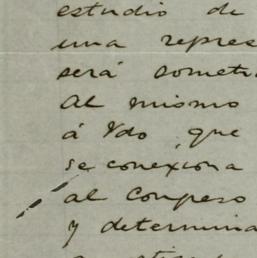 estudio de
una repres
será someti
Al mismo
á Vdo, que
se conexiona
al Congreso
y determina